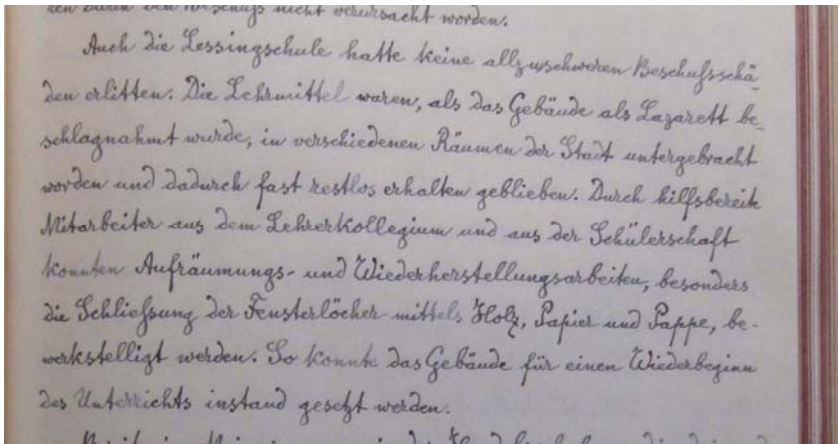 den durch den Beschuß nicht verursacht worden.
Auch die Lessingschule hatte keine allzuschweren Beschußschä-
den erlitten. Die Lehrmittel waren, als das Gebäude als Lazarett be-
schlagnahmt wurde, in verschiedenen Räumen der Stadt untergebracht
worden und dadurch fast restlos erhalten geblieben. Durch hilfsbereite
Mitarbeiter aus dem Lehrerkollegium und aus der Schülerschaft
konnten Aufräumungs- und Wiederherstellungsarbeiten, besonders
die Schließung der Fensterlöcher mittels Holz, Papier und Pappe, be-
werkstelligt werden. So konnte das Gebäude für einen Wiederbeginn
des Unterrichts instand gesetzt werden.